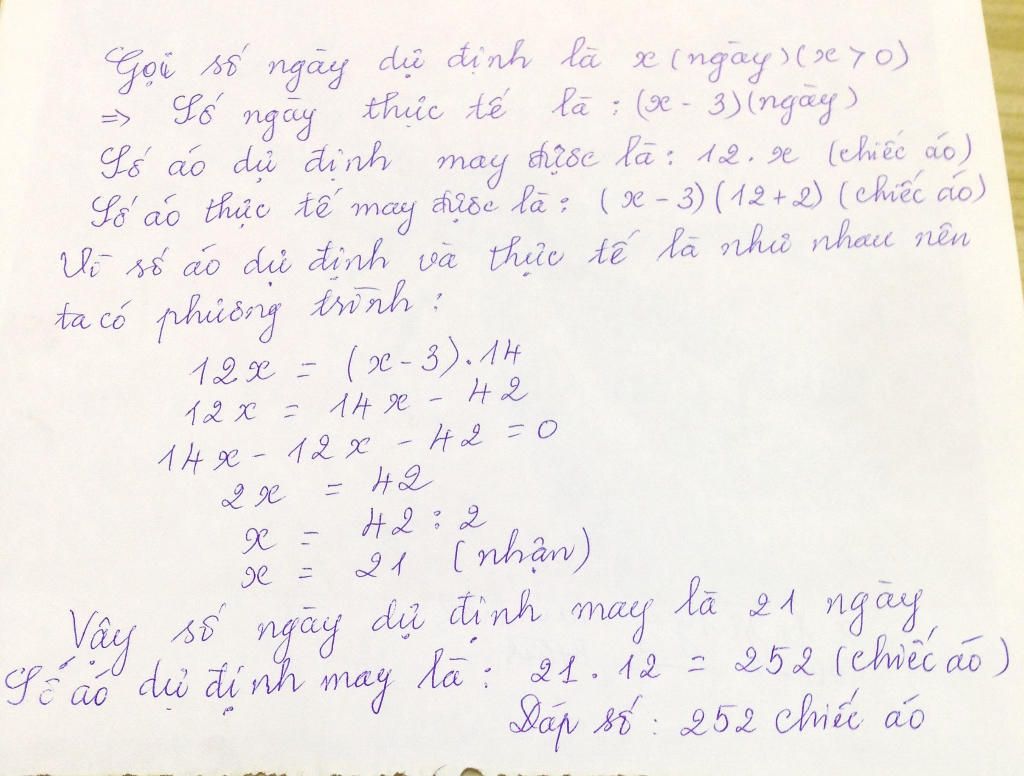 Gọi số ngày dự định là x (ngày) (x > 0)
=> Số ngày thực tế là : (x - 3) (ngày)
Số áo dự định may được là : 12 . x (chiếc áo)
Số áo thực tế may được là : (x - 3) (12 + 2) (chiếc áo)
Vì số áo dự định và thực tế là như nhau nên
ta có phương trình :
12x = (x - 3) . 14
12x = 14x - 42
14x - 12x - 42 = 0
2x = 42
x = 42 : 2
x = 21 (nhận)
Vậy số ngày dự định may là 21 ngày
Số áo dự định may là : 21 . 12 = 252 (chiếc áo)
Đáp số : 252 chiếc áo